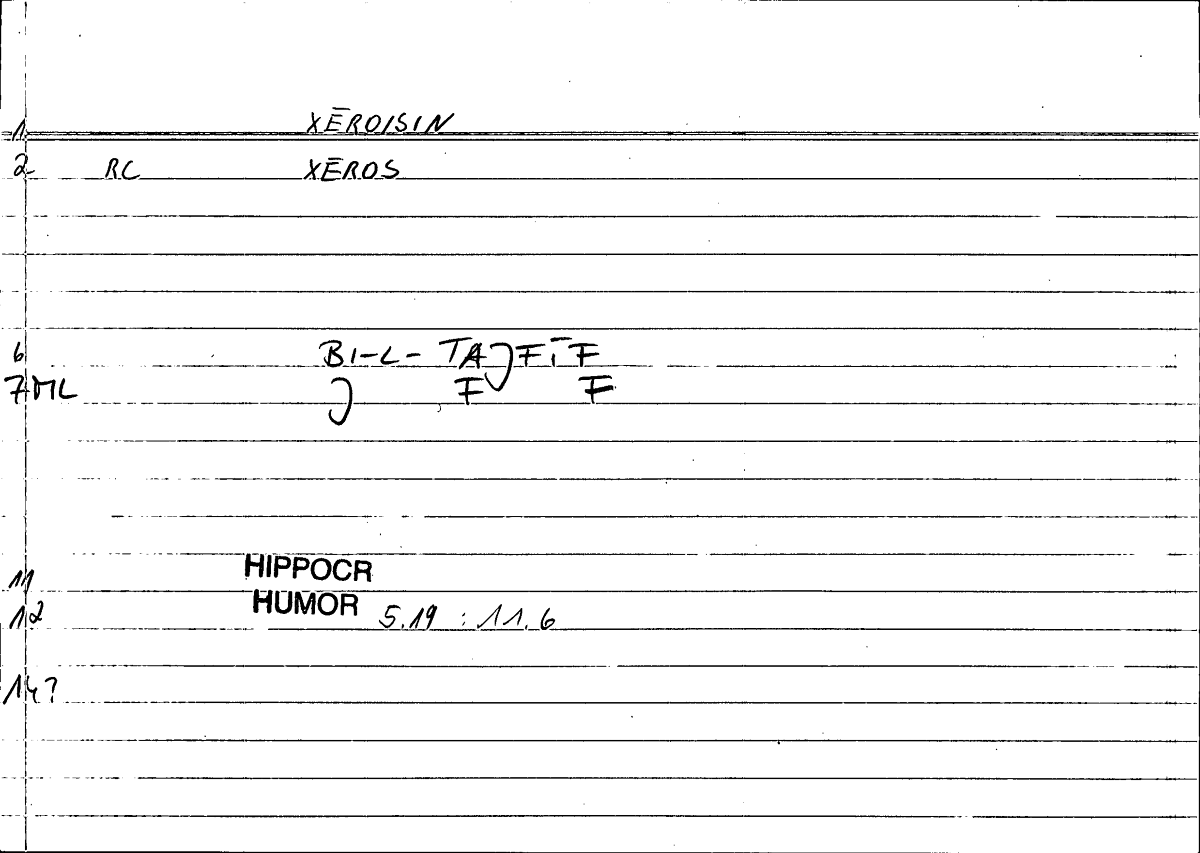 1 XĒROISIN
2 RC XĒROS
6 BI-L-TAJFĪF
7 ML J F F
11 HIPPOCR
12 HUMOR 5.19 : 11.6
14?